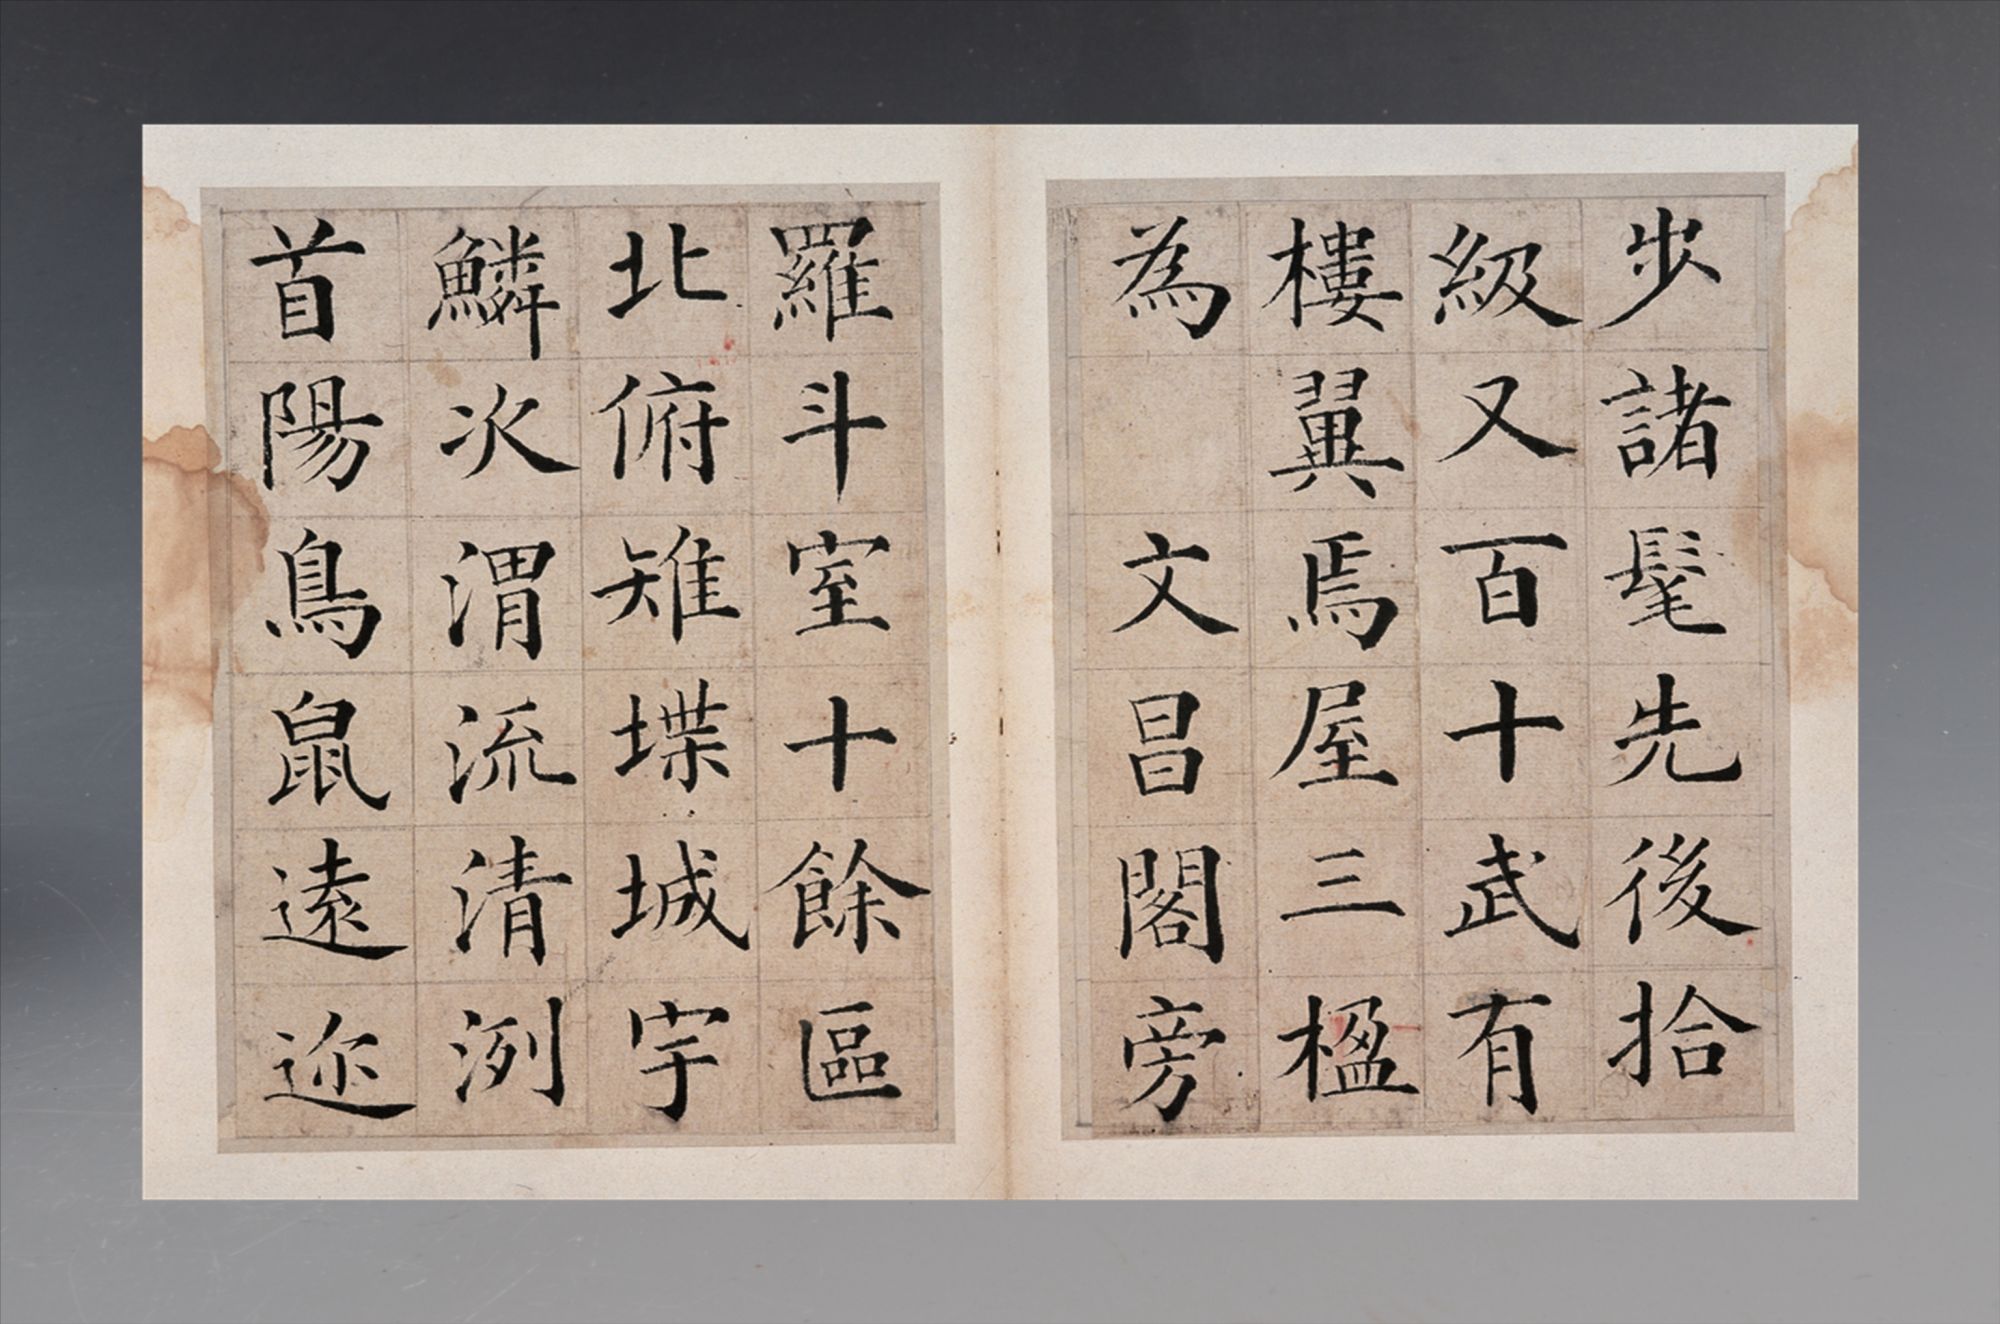 步諸髦先後拾
級又百十武有
樓翼焉屋三楹
為　文昌閣旁
羅斗室十餘區
北俯雉堞城宇
鱗次渭流清洌
首陽鳥鼠遠迩